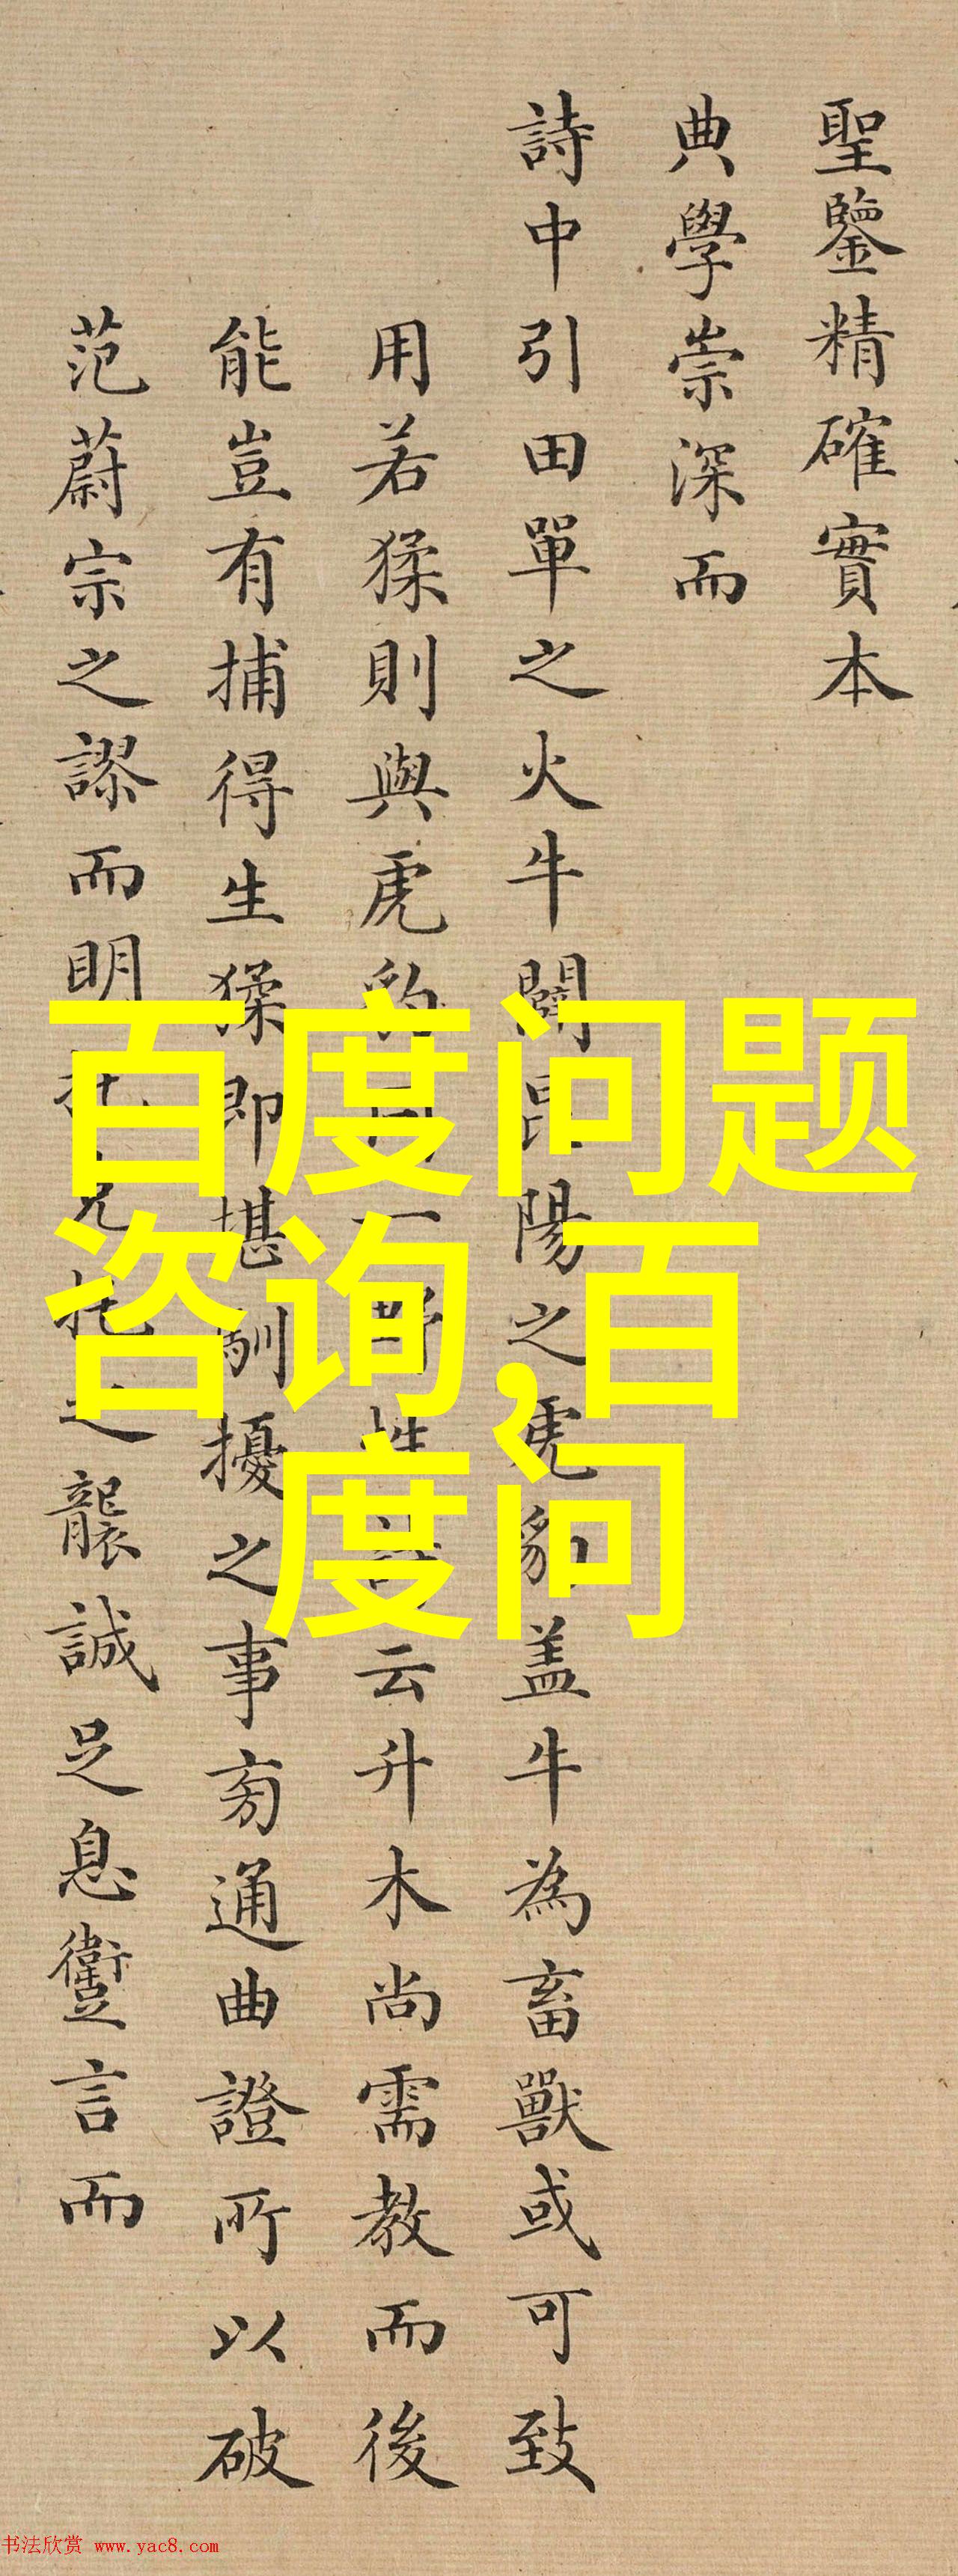 聖鑒精確實本
典學崇深而
詩中引田單之火牛闢昆陽之虎豹盖牛為畜獸或可致
用若猱則與虎豹野性云升木尚需教而後
能豈有捕得生猱即堪馴擾之事旁通曲證所以破
范蔚宗之謬而明之襲誠足息讏言而
百度问题
咨询,百
度问
书法欣赏 www.yac8.com